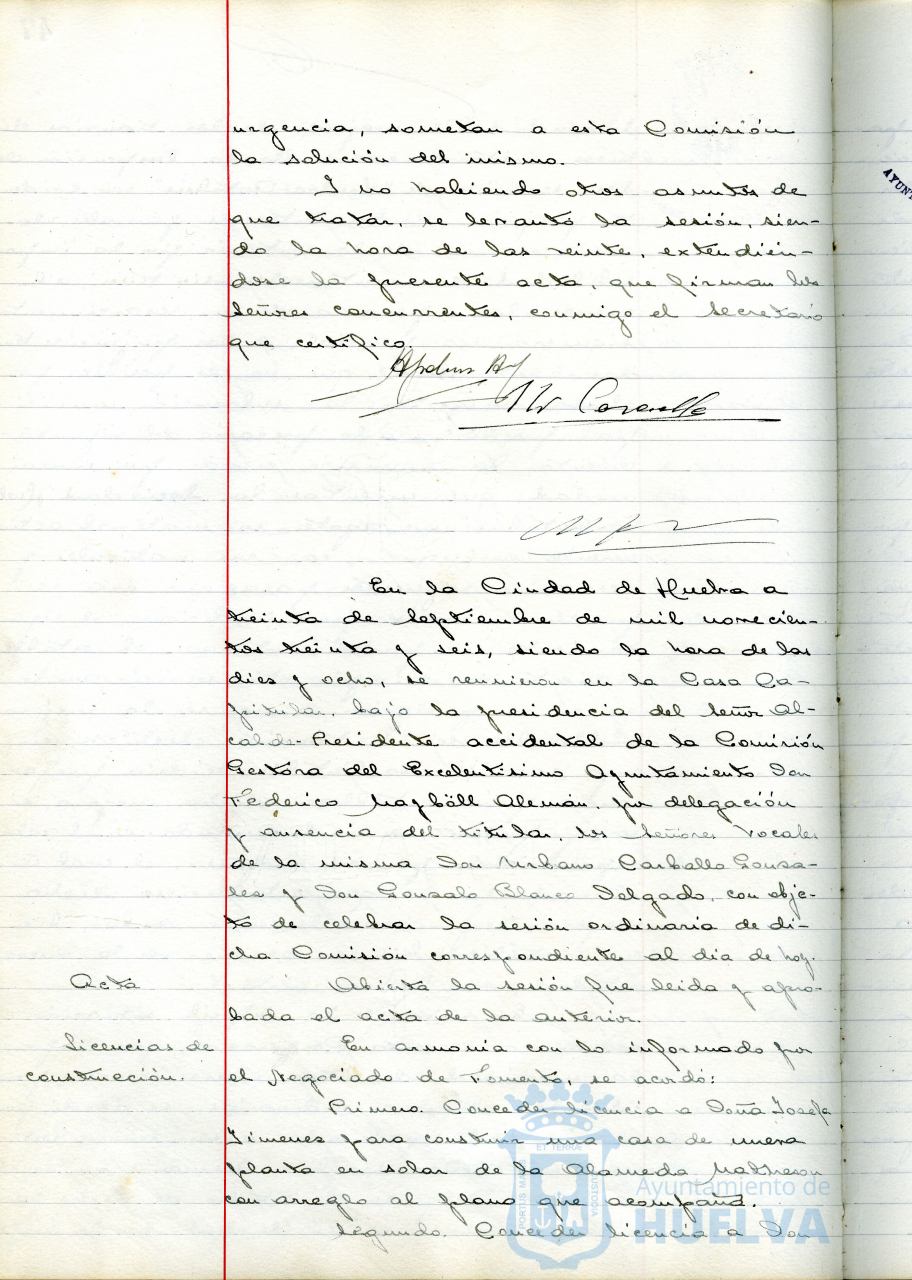 urgencia, sometan a esta Comisión
la solución del mismo.
Y no habiendo otros asuntos de
que tratar, se levantó la sesión, sien-
do la hora de las veinte, extendién-
dose la presente acta, que firman los
Señores concurrentes, conmigo el Secretario
que certifico.
En la Ciudad de Huelva a
treinta de Septiembre de mil novecien-
tos treinta y seis, siendo la hora de las
dies y ocho, se reunieron en la Casa Ca-
pitular, bajo la presidencia del Señor Al-
calde-Presidente accidental de la Comisión
Gestora del Excelentísimo Ayuntamiento Don
Federico Mayböll Alemán, por delegación
y ausencia del titular, los Señores Vocales
de la misma Don Urbano Carballo Gonsa-
les y Don Gonsalo Blanco Delgado, con obje-
to de celebrar la sesión ordinaria de di-
cha Comisión correspondiente al día de hoy.
Acta
Abierta la sesión fue leida y apro-
bada el acta de la anterior.
Licencias de
construcción.
En armonía con lo informado por
el Negociado de Fomento, se acordó:
Primero. Conceder licencia a Doña Josefa
Jimenes para construir una casa de nueva
planta en solar de la Alameda Matheson
con arreglo al plano que acompaña.
Segundo. Conceder licencia a Don
AYUNT
PORTUS MARIS
ET TERRÆ
CUSTODIA
Ayuntamiento de
HUELVA